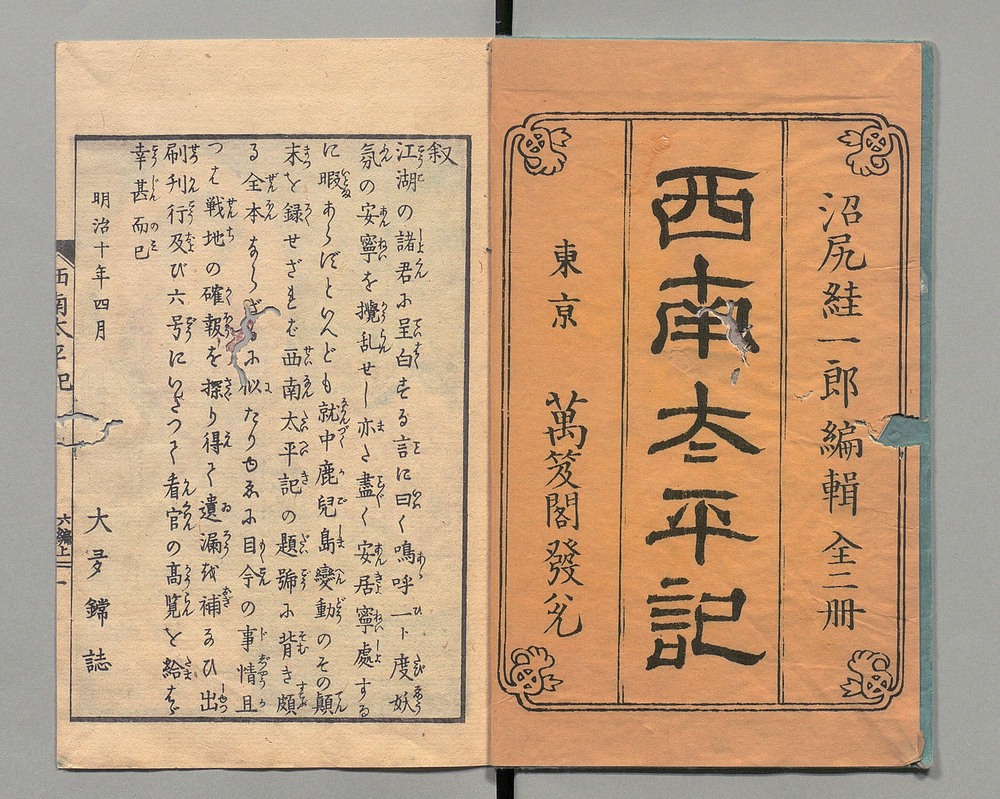 沼尻絓一郎編輯 全二冊
西南太平記
東京 萬笈閣發兌
叙
江湖の諸君に呈白する言に曰く嗚呼一ト度妖
氛の安寧を攪乱せし亦た盡く安居寧處する
に暇あらずといへども就中鹿兒島變動のその顛
末を録せざれば西南太平記の題號に背き頗
る全本ならざるに似たりゆゑに目今の事情且
つは戦地の確報を探り得て遺漏を補ひ出
刷刊行及び六号にいたつて看官の高覧を給はらば
幸甚而已
明治十年四月
大
鐺誌
西南太平記
六編上
一